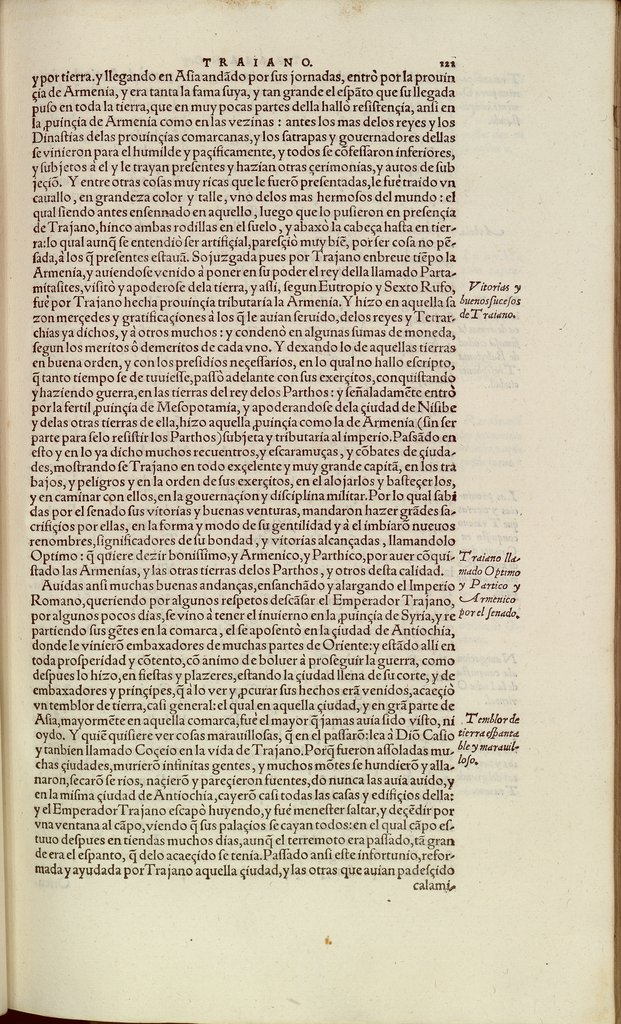 TRAIANO. 122
y por tierra. y llegando en Asia andãdo por sus jornadas, entrò por la prouin
çia de Armenia, y era tanta la fama suya, y tan grande el espãto que su llegada
puso en toda la tierra, que en muy pocas partes della hallò resistençia, ansi en
la ꝓuinçia de Armenia como en las vezinas : antes los mas delos reyes y los
Dinastias delas prouinçias comarcanas, y los satrapas y gouernadores dellas
se vinieron para el humilde y paçificamente, y todos se cõfessaron inferiores,
y subjetos à el y le trayan presentes y hazian otras çerimonias, y autos de sub
jeçiõ. Y entre otras cosas muy ricas que le fuerõ presentadas, le fuè traido vn
cauallo, en grandeza color y talle, vno delos mas hermosos del mundo : el
qual siendo antes ensennado en aquello, luego que lo pusieron en presençia
de Trajano, hinco ambas rodillas en el suelo, y abaxò la cabeça hasta en tier-
ra: lo qual aunq̃ se entendiò ser artifiçial, paresçiò muy biẽ, por ser cosa no pẽ-
sada, à los q̃ presentes estauã. Sojuzgada pues por Trajano en breue tiẽpo la
Armenia, y auiendose venido à poner en su poder el rey della llamado Parta-
mitasites, visitò y apoderose dela tierra, y assi, segun Eutropio y Sexto Rufo,
fuè por Trajano hecha prouinçia tributaria la Armenia. Y hizo en aquella sa
zon merçedes y gratificaçiones à los q̃ le auian seruido, delos reyes y Tetrar-
chias ya dichos, y à otros muchos : y condenò en algunas sumas de moneda,
segun los meritos ò demeritos de cada vno. Y dexando lo de aquellas tierras
en buena orden, y con los presidios neçessarios, en lo qual no hallo escripto,
q̃ tanto tiempo se detuuiesse, passò adelante con sus exerçitos, conquistando
y haziendo guerra, en las tierras del rey delos Parthos : y señaladamẽte entrò
por la fertil ꝓuinçia de Mesopotamia, y apoderandose dela çiudad de Nisibe
y delas otras tierras de ella, hizo aquella ꝓuinçia como la de Armenia (sin ser
parte para selo resistir los Parthos) subjeta y tributaria al imperio. Passãdo en
esto y en lo ya dicho muchos recuentros, y escaramuças, y cõbates de çiuda-
des, mostrando se Trajano en todo exçelente y muy grande capitã, en los tra
bajos, y peligros y en la orden de sus exerçitos, en el alojarlos y basteçer los,
y en caminar con ellos, en la gouernaçion y disciplina militar. Por lo qual sabi
das por el senado sus vitorias y buenas venturas, mandaron hazer grãdes sa-
crifiçios por ellas, en la forma y modo de su gentilidad y à el imbiarõ nueuos
renombres, significadores de su bondad, y vitorias alcançadas, llamandolo
Optimo : q̃ quiere dezir bonissimo, y Armenico, y Parthico, por auer cõqui-
stado las Armenias, y las otras tierras delos Parthos, y otros desta calidad.
Auidas ansi muchas buenas andanças, ensanchãdo y alargando el Imperio
Romano, queriendo por algunos respetos descãsar el Emperador Trajano,
por algunos pocos dias, se vino à tener el inuierno en la ꝓuinçia de Syria, y re
partiendo sus gẽtes en la comarca, el se aposentò en la çiudad de Antiochia,
donde le vinierõ embaxadores de muchas partes de Oriente: y estãdo alli en
toda prosperidad y cõtento, cõ animo de boluer à proseguir la guerra, como
despues lo hizo, en fiestas y plazeres, estando la çiudad llena de su corte, y de
embaxadores y prinçipes, q̃ à lo ver y ꝓcurar sus hechos erã venidos, acaesçiò
vn temblor de tierra, casi general: el qual en aquella çiudad, y en grã parte de
Asia, mayormẽte en aquella comarca, fuè el mayor q̃ jamas auia sido visto, ni
oydo. Y quiẽ quisiere ver cosas marauillosas, q̃ en el passarõ: lea à Diõ Casio
y tanbien llamado Coçeio en la vida de Trajano. Porq̃ fueron assoladas mu-
chas çiudades, murierõ infinitas gentes, y muchos mõtes se hundierõ y alla-
naron, secarõ se rios, naçierõ y pareçieron fuentes, dò nunca las auia auido, y
en la misma çiudad de Antiochia, cayerõ casi todas las casas y edifiçios della:
y el Emperador Trajano escapò huyendo, y fuè menester saltar, y deçẽdir por
vna ventana al cãpo, viendo q̃ sus palaçios se cayan todos: en el qual cãpo es-
tuuo despues en tiendas muchos dias, aunq̃ el terremoto era passado, tã gran
de era el espanto, q̃ delo acaeçido se tenia. Passado ansi este infortunio, refor-
mada y ayudada por Trajano aquella çiudad, y las otras que auian padesçido
calami-
Vitorias y
buenos sucesos
de Traiano.
Traiano lla-
mado Optimo
y Partico y
Armenico
por el senado.
Temblor de
tierra espanta
ble y marauil-
loso.